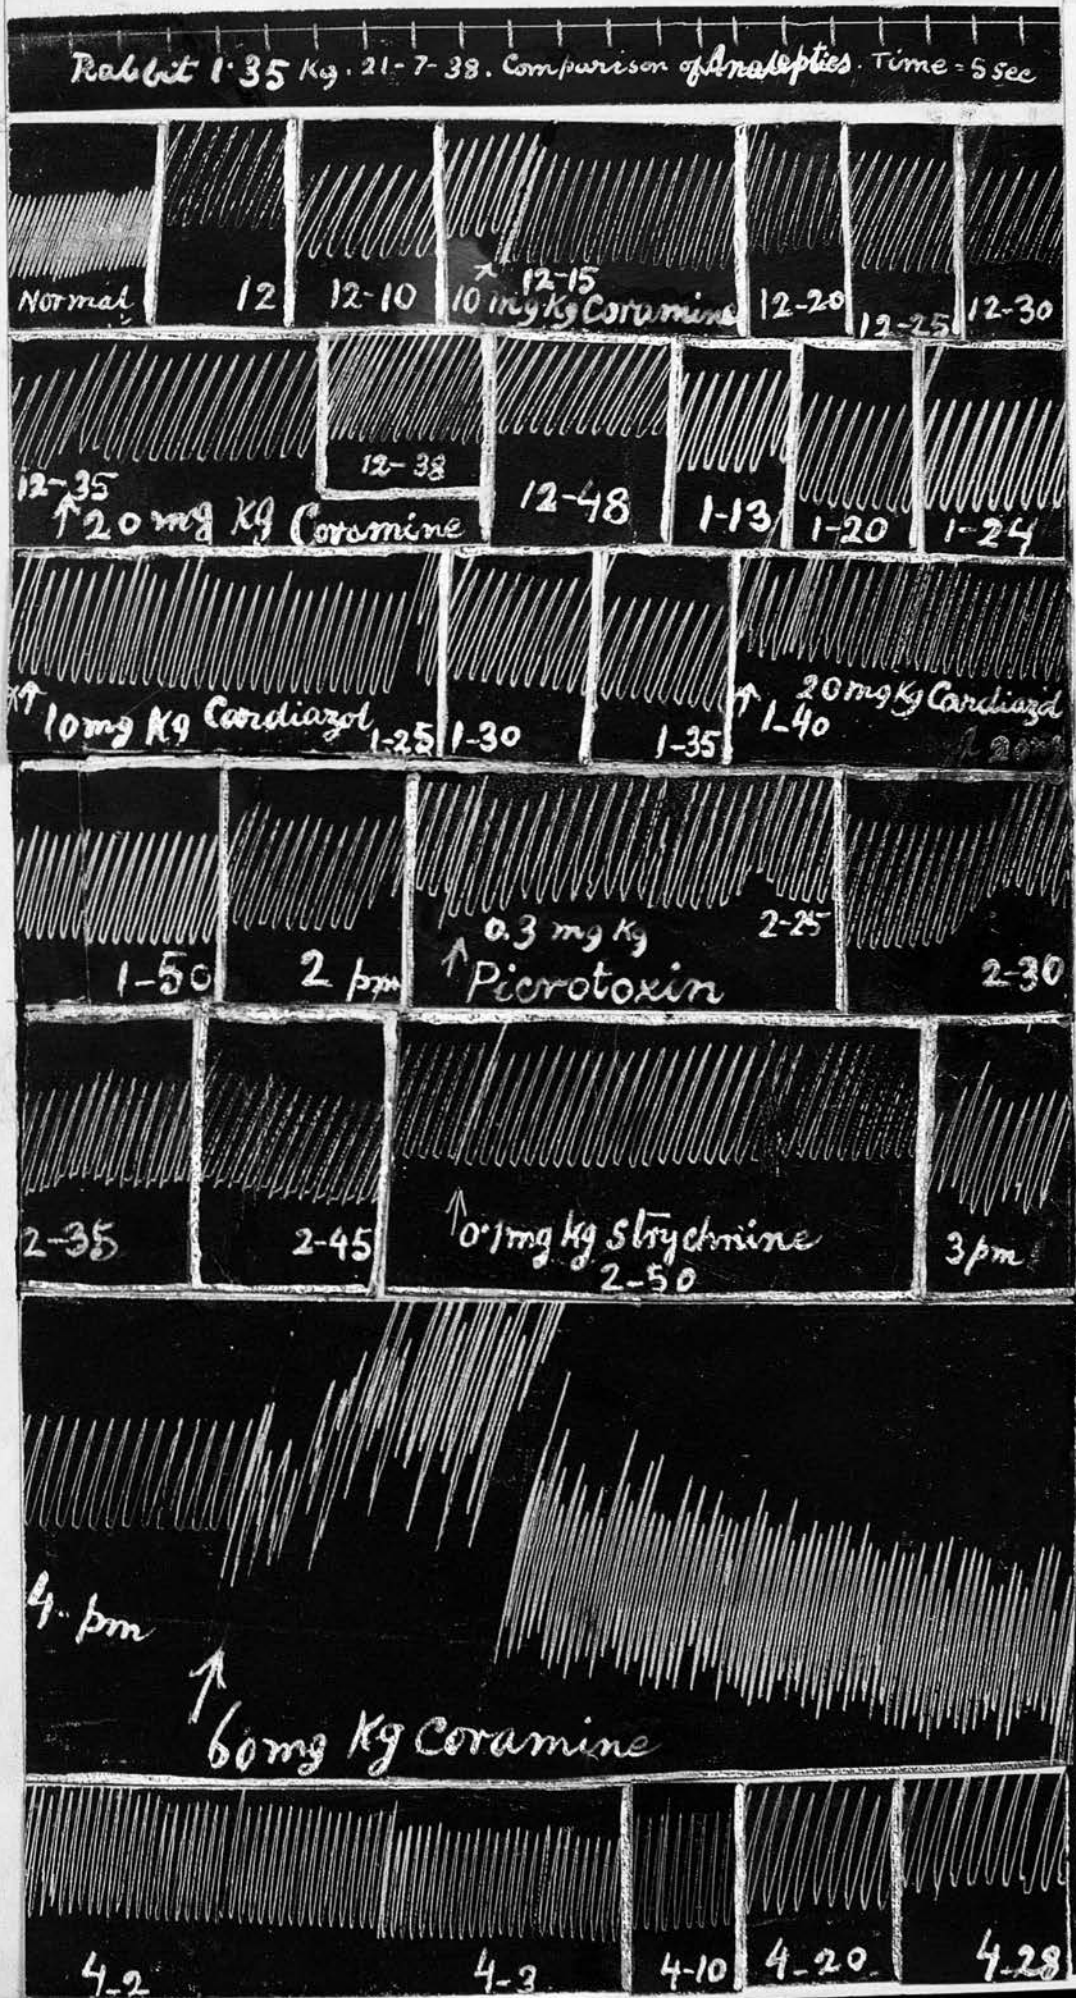 Rabbit 1.35 Kg. 21-7-38. Comparison of Analeptics. Time = 5 sec
Normal
12
12-10
12-15
10 mg Kg Coramine
12-20
12-25
12-30
12-35
↑ 20 mg Kg Coramine
12-38
12-48
1-13
1-20
1-24
↑ 10 mg Kg Cardiazol
1-25
1-30
1-35
↑ 20 mg Kg Cardiazol
1-40
1-50
2 pm
0.3 mg Kg
↑ Picrotoxin
2-25
2-30
2-35
2-45
↑ 0.1 mg Kg Strychnine
2-50
3 pm
4 pm
↑
60 mg Kg Coramine
4-2
4-3
4-10
4-20
4-28